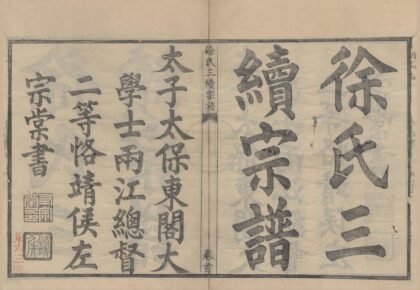 徐氏三
續宗譜
徐氏三續宗譜
卷首
太子太保東閣大
學士兩江總督
二等恪靖侯左
宗棠書